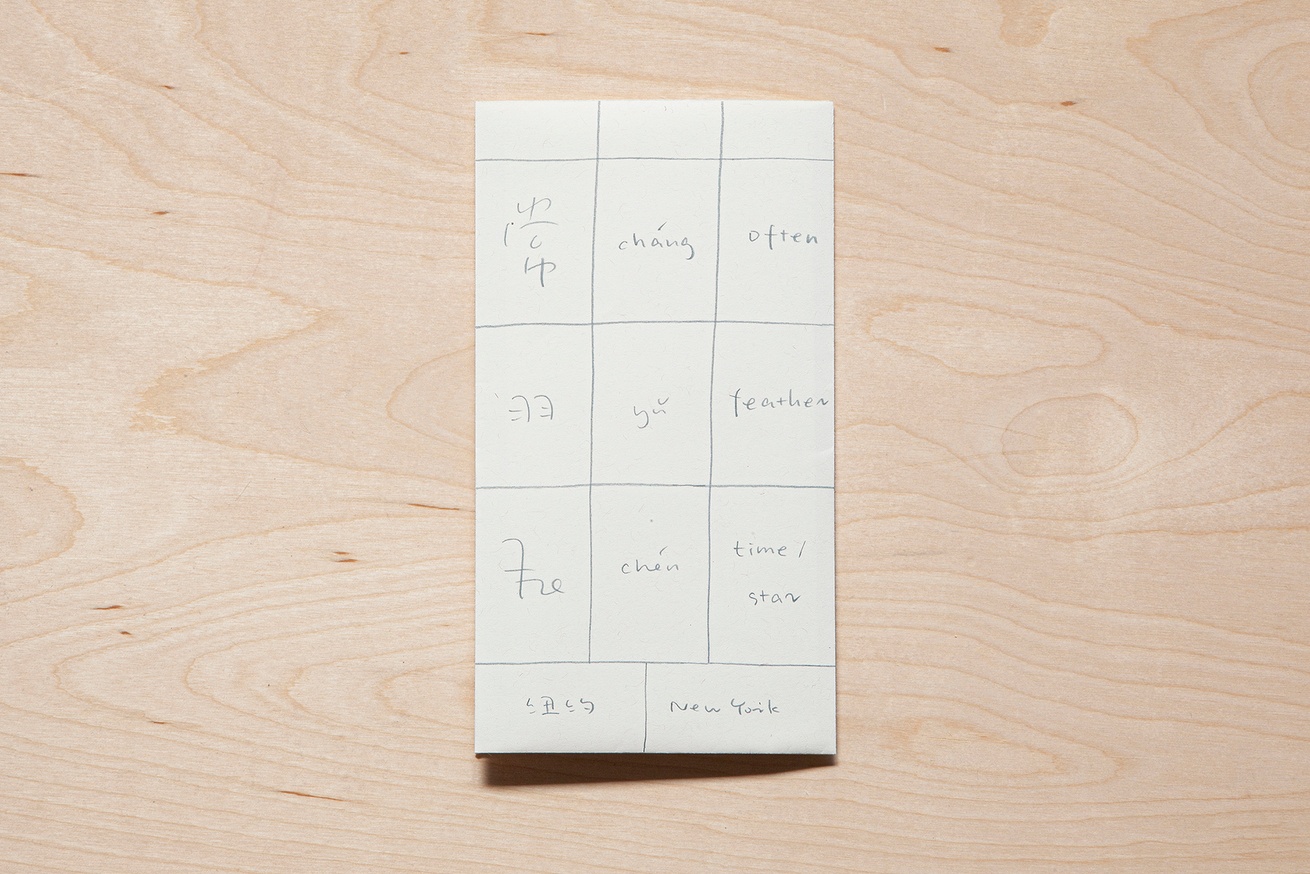 常 cháng often
羽 yǔ feather
辰 chén time /
star
纽约 New York